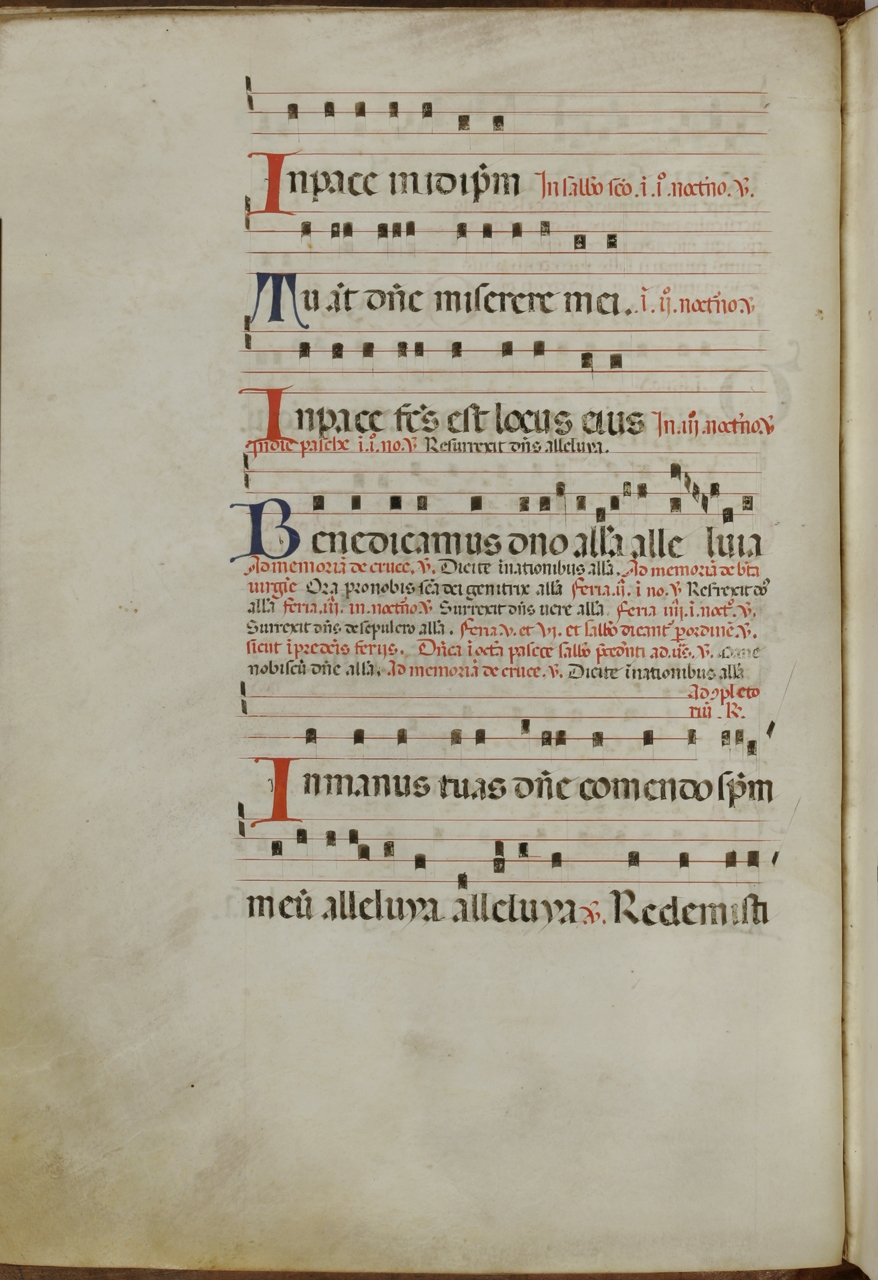 In pace in idip̄m In sabb̄o sc̄o .ī .i.º noct̄no. ℣.
Tu aūt dn̄e miserere mei. .ī .ij.º noct̄no ℣
In pace fc̄s est locus eius In .iij. noct̄no ℣
In die pasche ī .i.º no. ℣ Resurrexit dn̄s alleluya.
Benedicamus dn̄o all̄a alle luia
Ad memoriā de cruce. ℣. Dicite ī nationibus all̄a. Ad memoriā de bt̄a
uirgīe Ora pro nobis sc̄a dei genitrix all̄a feria .ij. ī no. ℣
all̄a feria .iij. in noct̄no ℣ Surrexit dn̄s uere all̄a feria iiij. ī noct̄. ℣.
Surrexit dn̄s de sepulcro all̄a. feria v. et vi. et sabb̄o dicant̄ p ordinē ℣.
sicut ī p̄cedēs ferijs. Dn̄ca ī octā pasce sabb̄o ad. ℣.
nobiscū dn̄e all̄a. Ad memoriā de cruce. ℣. Dicite ī nationibus all̄a
Ad ꝯpleto
riū. ℟.
In manus tuas dn̄e comendo sp̄m
meū alleluya alleluya ℣. Redemisti